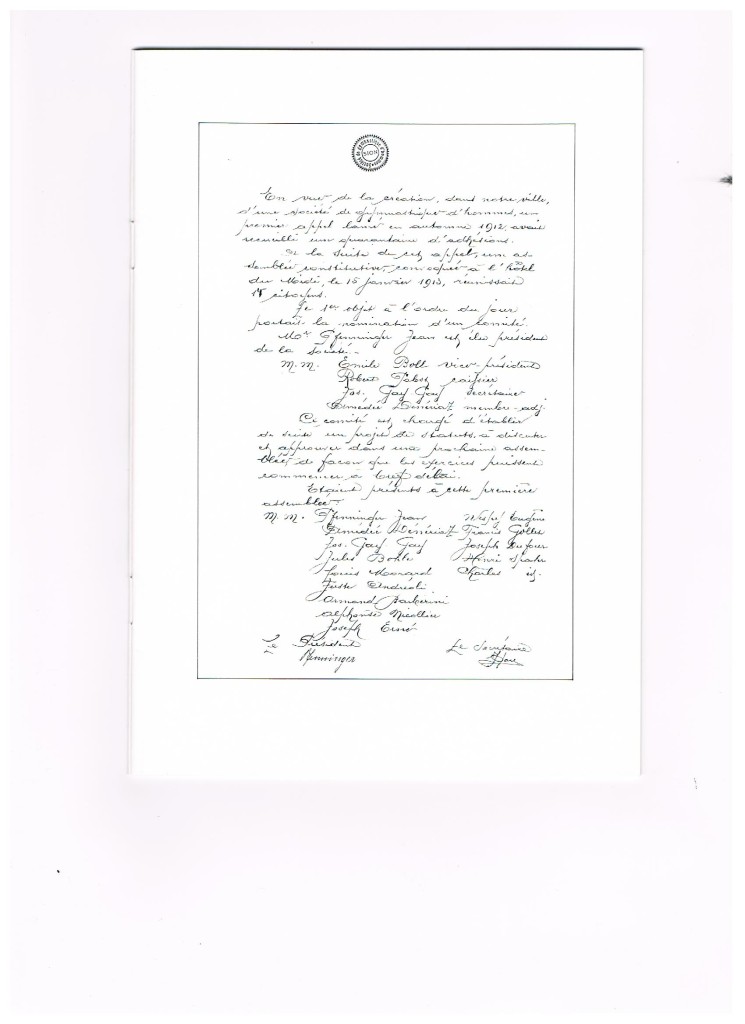 SION
En vue de la création, dans notre ville,
d'une société de gymnastique d'hommes, un
premier appel lancé en automne 1912, avait
recueilli une quarantaine d'adhésions.
A la suite de cet appel, une as-
semblée constitutive, convoquée à l'hôtel
du Midi, le 15 janvier 1913, réunissait
citoyens.
Le 1er objet à l'ordre du jour
portait la nomination d'un comité.
Mr Pfenninger Jean est élu président
de la Société.-
M.M. Emile Boll vice-président
Robert caissier
Jos. Gay Gay secrétaire
Dénériaz membre-adj.
Ce comité est chargé d'établir
de suite un projet de statuts, à discuter
et approuver dans une prochaine assem-
blée, de façon que les exercices puissent
commencer à bref délai.
Etaient présents à cette première
assemblée:
M.M. Pfenninger Jean Eugène
Dénériaz Francis
Jos. Gay Gay Joseph Dufour
Jules Henri
Louis Morard Charles id.
Juste Andréoli
Armand Barberini
Alphonse Nicollier
Joseph
Le Président Le Secrétaire
Pfenninger